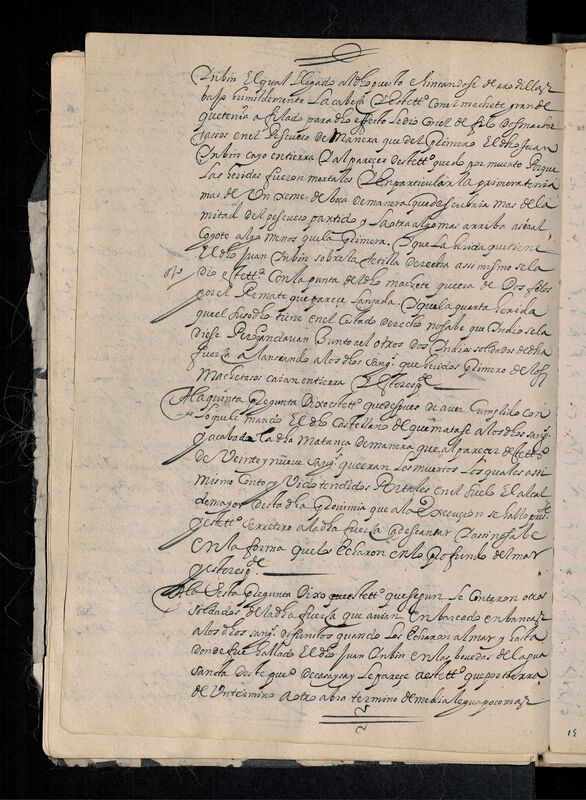 Inbin El qual llegado al dho puesto e hincandose de rrodillas y
baxo humildemente La cabeza Y este tto con el machete grande
que tenia afilado para dho efecto Le dio con el de filo dos machet
tasos en el Pescueso de Manera que del primero El dho Juan
Inbin cayo en tierra Y al parecer deste tto quedo por muerto Porque
Las heridas fueron mortales Y en particular la primera tenia
mas de Un xeme de boca de manera que descubria mas de la
mitad del pescueso partido y la otra algo mas arriba asia el
Cogote algo menos que la primera. Y que la herida que tiene
El dho Juan Inbin sobre la tetilla derecha assi mismo se la
dio este tto Con la punta del dho machete que era de Dos filos
por el Remate que parece Lansada. Y que la quarta herida
que el susodho tiene en el Costado derecho no sabe que Indio se la
diese Porque andavan Junto a el otros dos Indios soldados de dha
fuerza alansando a los dhos sang.s que heridos primero de los
Machetasos caian en tierra Y esto resp.de
A la quinta Pregunta Dixo este tto que despues de aver Cumplido con
Lo que le mando El dho Castellano de que matase a los dhos sang.s
Y acabada la dha Matanza de manera que al parecer deste tto
de Veinte y nueve sang.s que eran Los muertos Los quales assi
mismo Conto y Vido tendidos Mortales en el suelo El alcal
de mayor desta dha Provincia que a la Execucion se hallo press.te
Y este tto se rretiro a la dha fuerza a descansar Y assi no sabe
en la forma que los Echaron en lo profundo del mar
y esto resp.de
A la Sesta Pregunta Dixo este tto que segun Le Contaron otros
soldados de la dha fuerza que avian Enbarcado en bancas
a los dhos sang.s difuntos quando Los Echaron al mar y hasta
donde fue hallado El dho Juan Inbin en las bovedas del agua
Sancta deste puo de casaysay Le parece a este tto que por tierra
de Un termino a otro abra termino de media legua poco mas